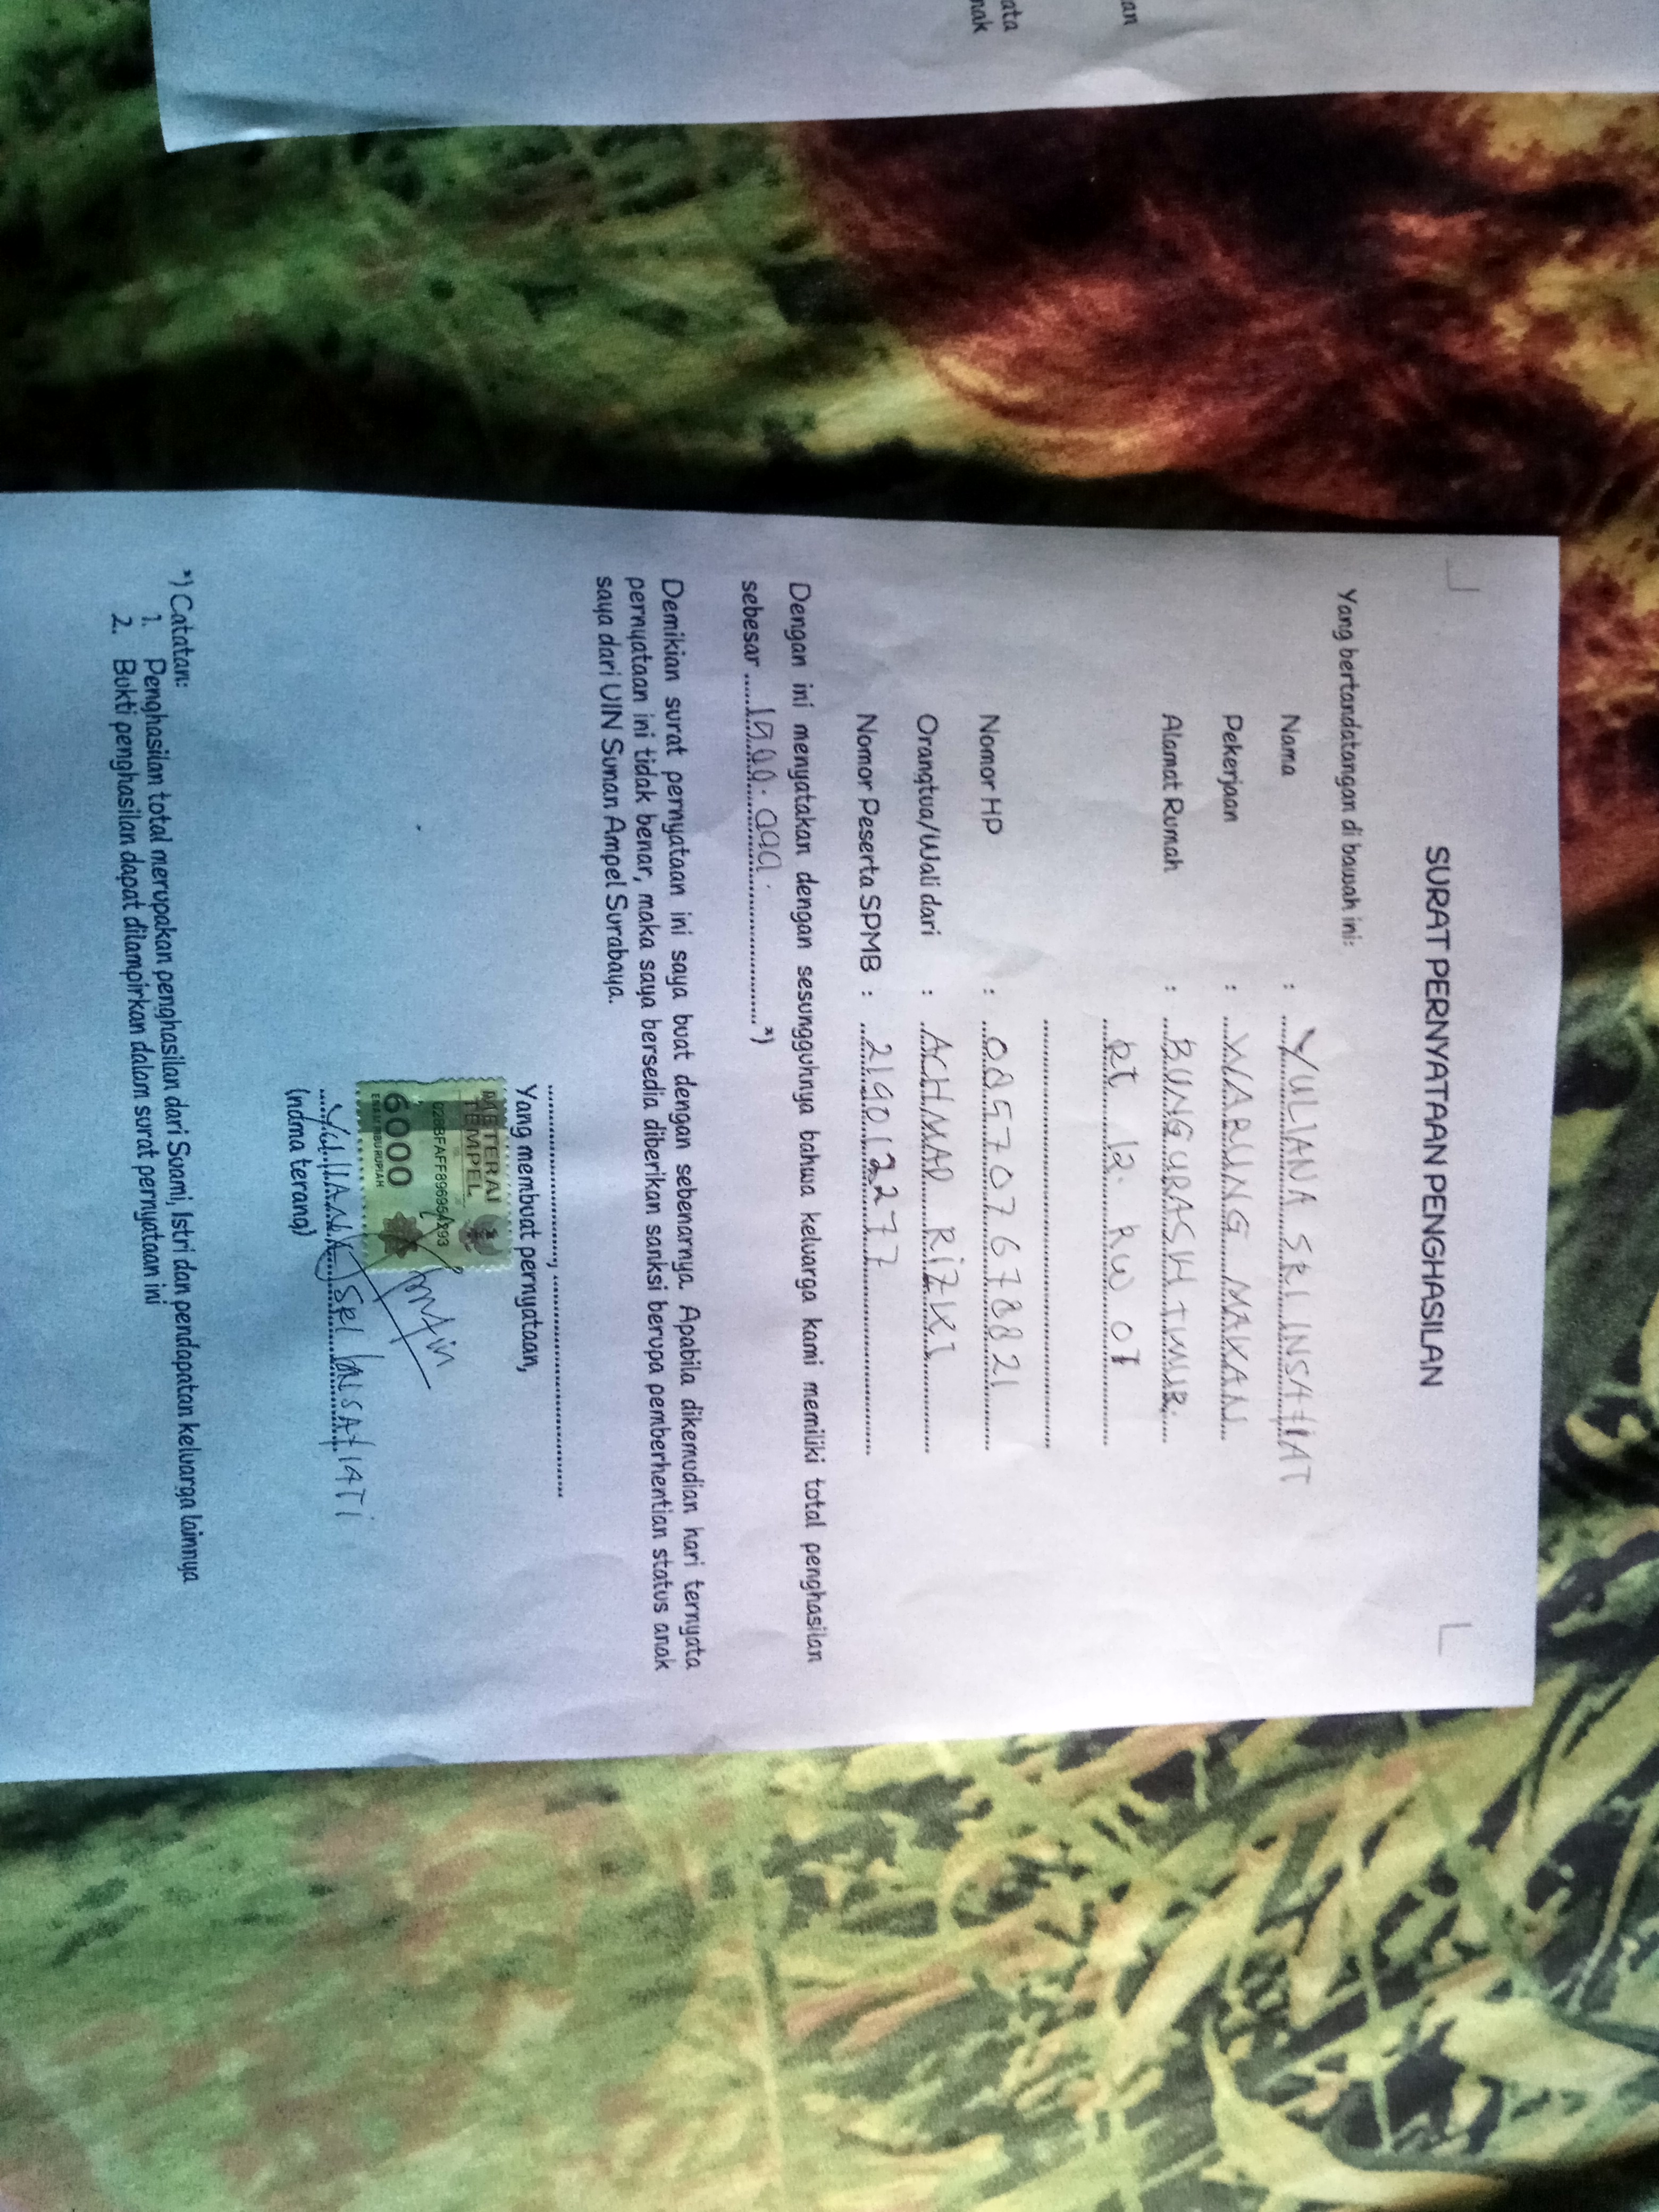 SURAT PERNYATAAN PENGHASILAN
Yang bertandatangan di bawah ini:
Nama : YULIANA SRI INSAFIAT
Pekerjaan : WARUNG MAKAN
Alamat Rumah : BUNGURASIH TIMUR.
Rt 12. RW 01
Nomor HP : 085707678821
Orangtua/Wali dari : ACHMAD RiZKI
Nomor Peserta SPMB : 2190122777
Dengan ini menyatakan dengan sesungguhnya bahwa keluarga kami memiliki total penghasilan
sebesar *)
Demikian surat pernyataan ini saya buat dengan sebenarnya. Apabila dikemudian hari ternyata
pernyataan ini tidak benar, maka saya bersedia diberikan sanksi berupa pemberhentian status anak
saya dari UIN Sunan Ampel Surabaya.
Yang membuat pernyataan,
METERAI
TEMPEL
6000
ENAM RIBU RUPIAH
YULIANA SRI INSAFIATI
(nama terang)
*) Catatan:
1. Penghasilan total merupakan penghasilan dari Suami, Istri dan pendapatan keluarga lainnya
2. Bukti penghasilan dapat dilampirkan dalam surat pernyataan ini
an
ata
nak